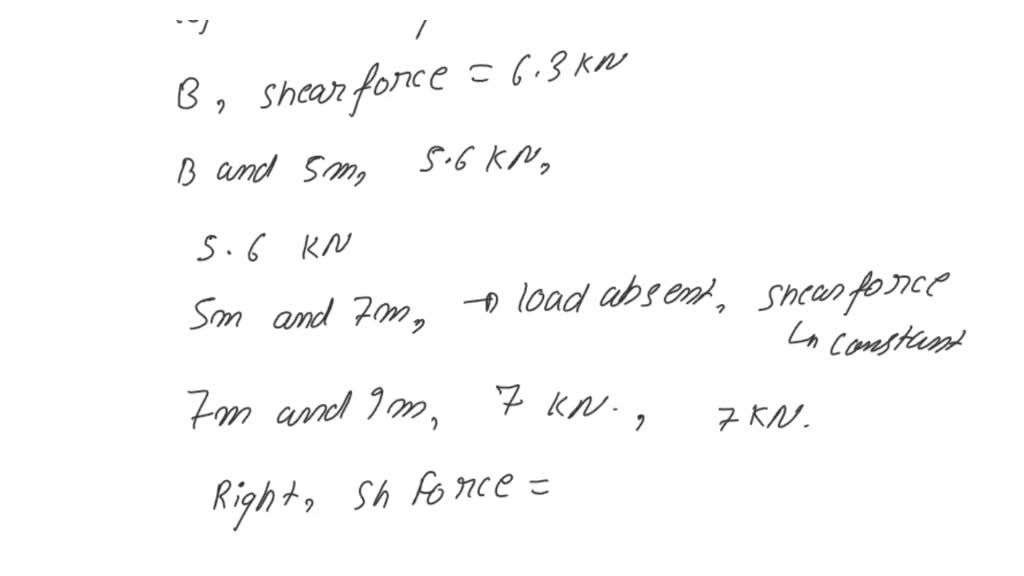 B, shear force = 6.3 KN
B and 5m, 5.6 KN,
5.6 KN
5m and 7m, → load absent, shear force
↳ constant
7m and 9m, 7 KN., 7 KN.
Right, sh force =